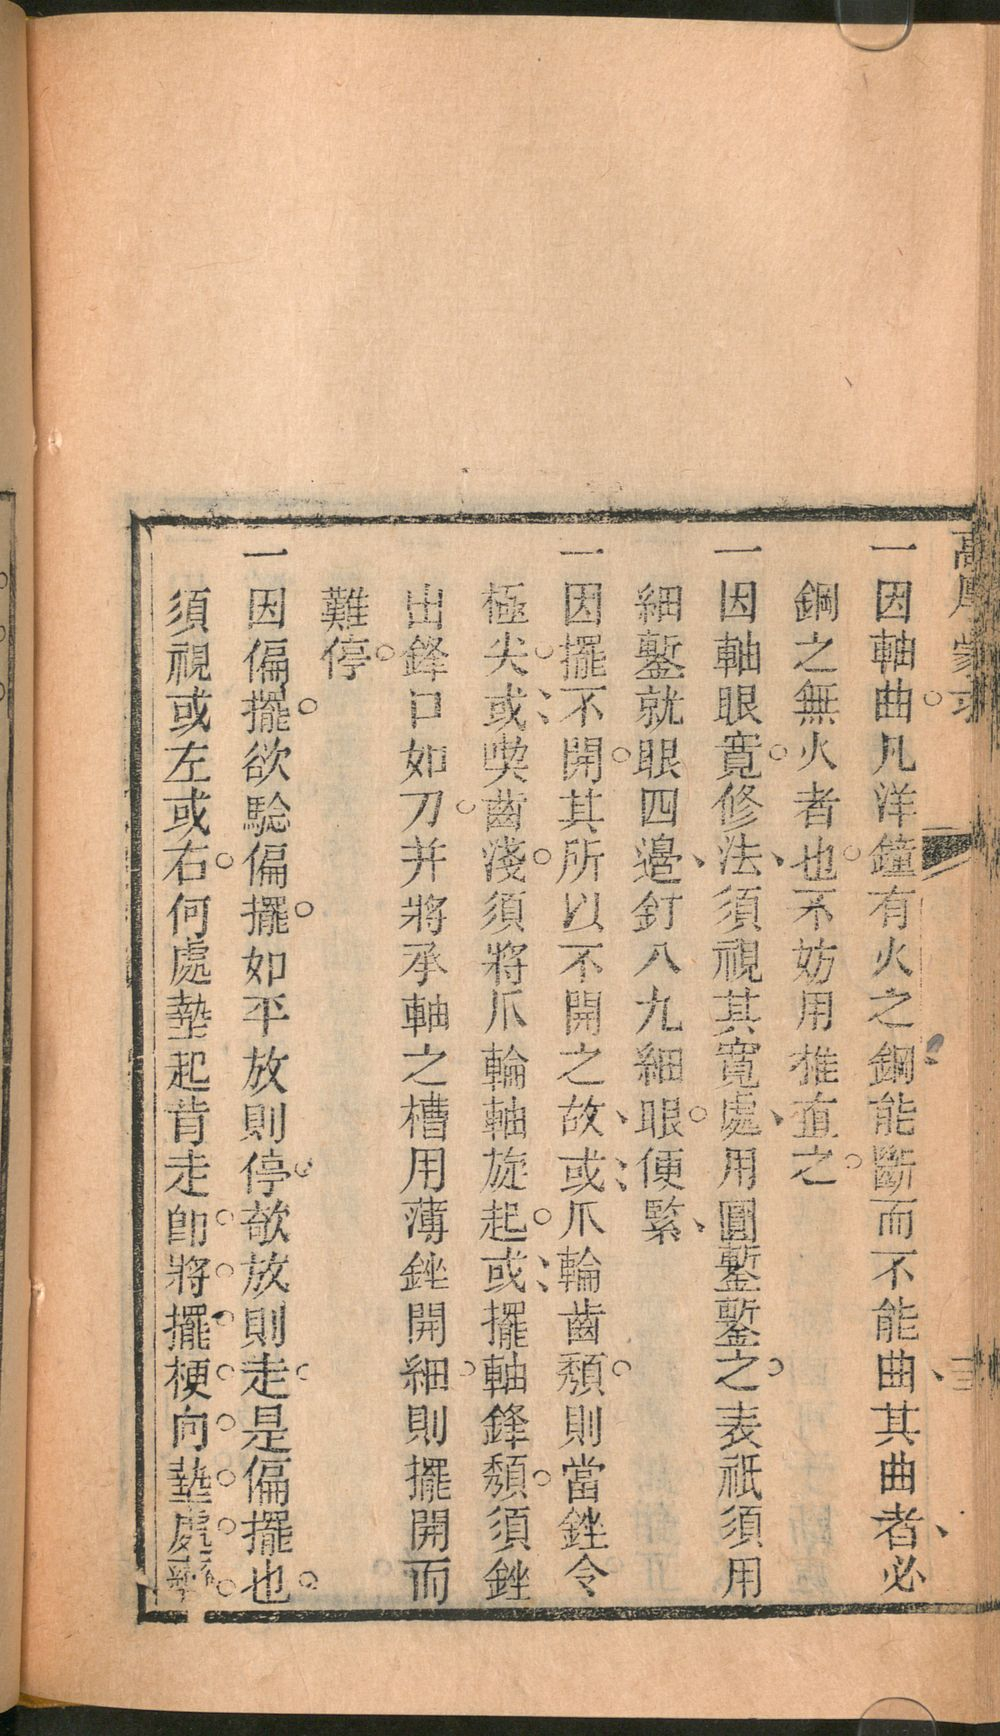 一因軸曲凡洋鐘有火之鋼能斷而不能曲其曲者必
鋼之無火者也不妨用推直之
一因軸眼寬修法須視其寬處用圓鏨鏨之表祇須用
細鏨就眼四邊釘八九細眼便緊
一因擺不開其所以不開之故或爪輪齒頹則當銼令
極尖或喫齒淺須將爪輪軸旋起或擺軸鋒頹須銼
出鋒口如刀并將承軸之槽用薄銼開細則擺開而
難停
一因偏擺欲驗偏擺如平放則停欹放則走是偏擺也
須視或左或右何處墊起肯走卽將擺梗向墊處